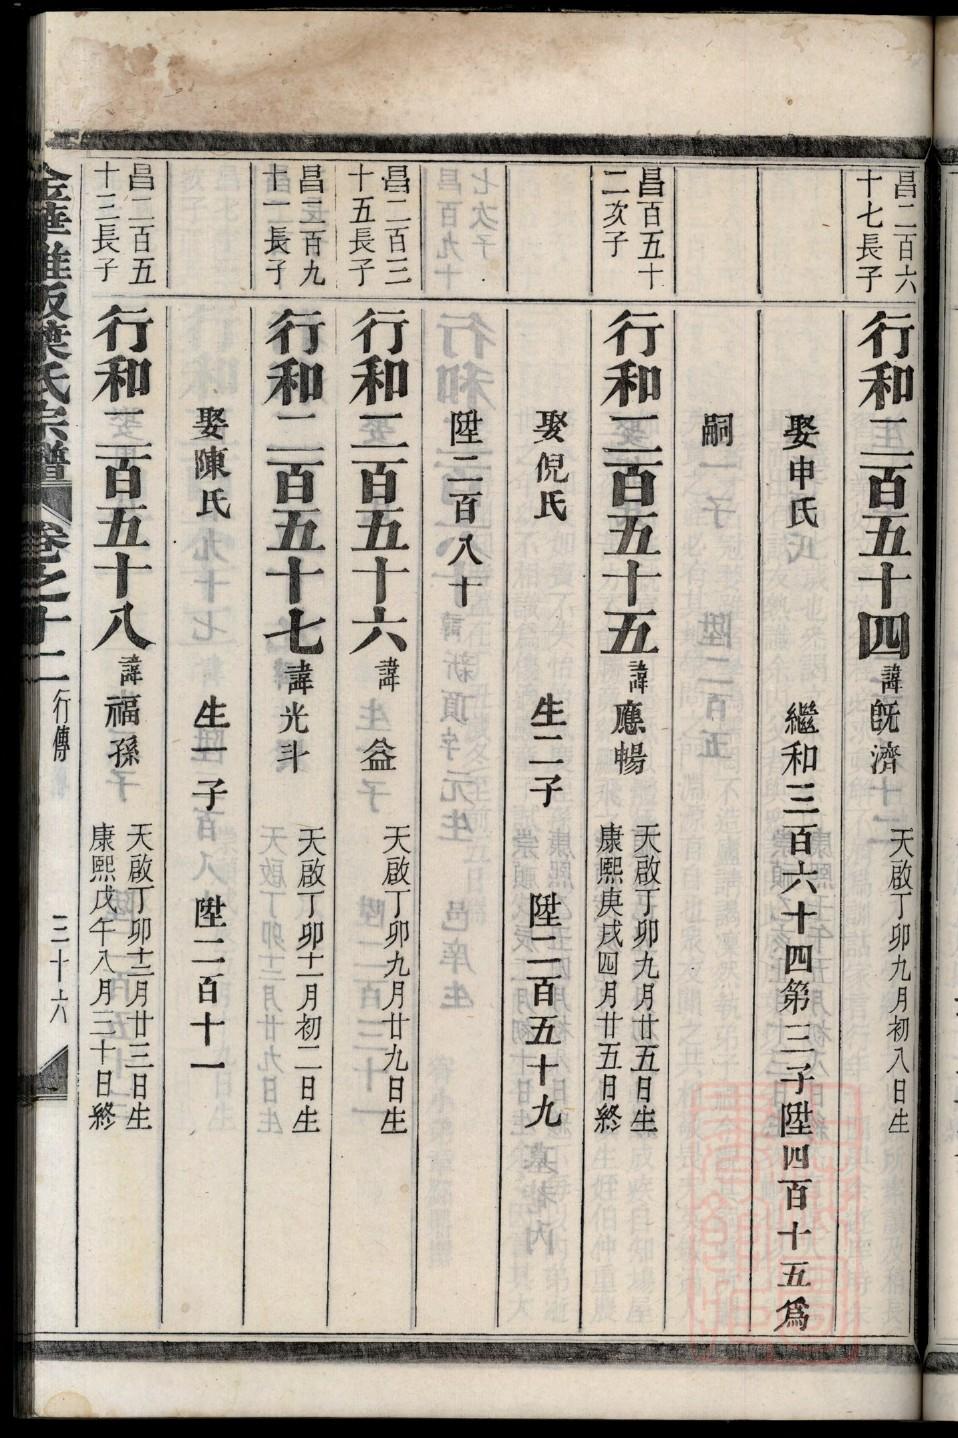 昌二百六
十七長子
行和二百五十四 諱既濟 天啟丁卯九月初八日生
娶申氏 繼和三百六十四第三子陞四百十五爲
嗣
昌百五十
二次子
行和二百五十五 諱應暢 天啟丁卯九月廿五日生
康熙庚戌四月廿五日終
娶倪氏 生二子 陞二百五十九
陞二百八十
昌二百三
十五長子
行和二百五十六 諱益 天啟丁卯九月廿九日生
昌二百九
十一長子
行和二百五十七 諱光斗 天啟丁卯十一月初二日生
娶陳氏 生一子 陞二百十一
昌二百五
十三長子
行和二百五十八 諱福孫 天啟丁卯十二月廿三日生
康熙戊午八月三十日終
金華 版葉氏宗譜 卷之十二 行傳 三十六